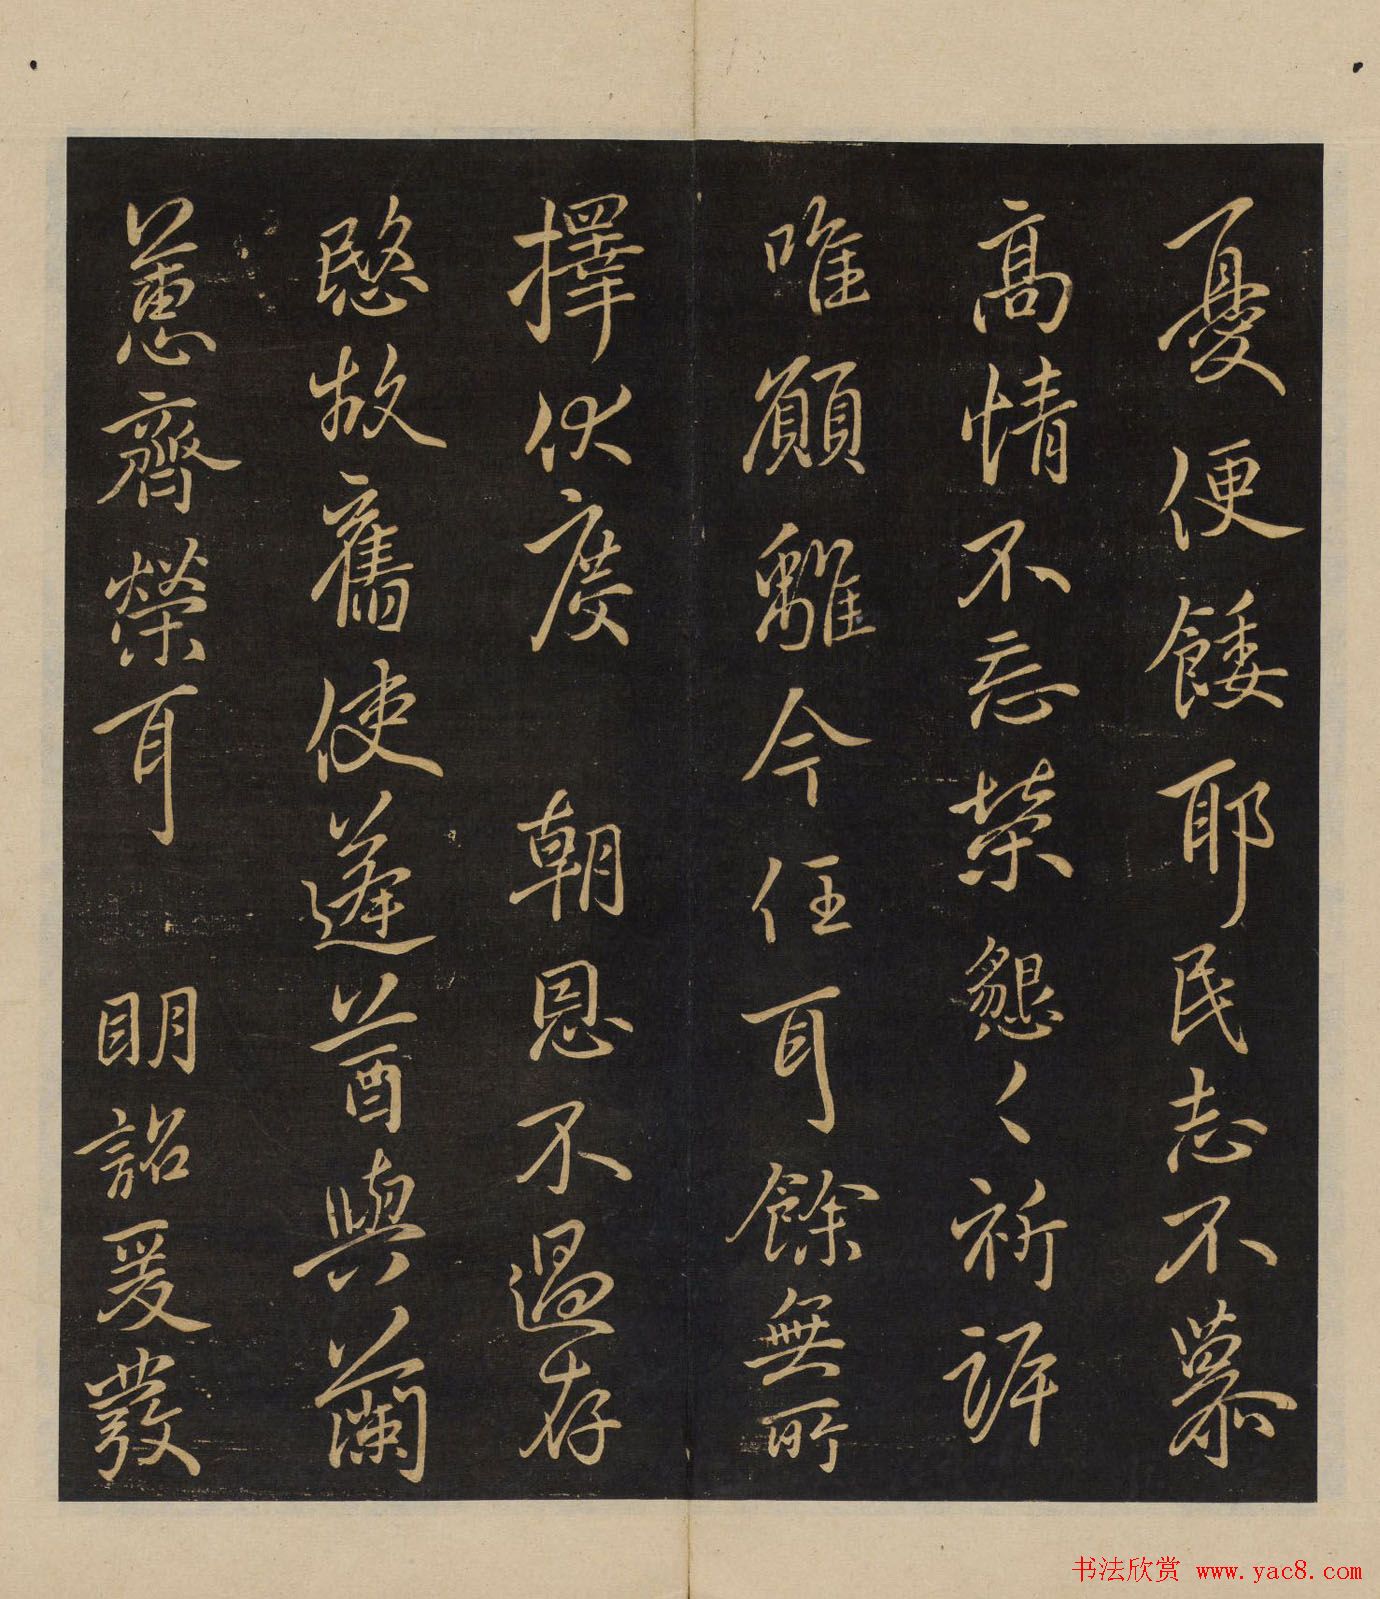 憂便餧耶民志不慕
高情不忘榮懇〻祈訴
唯願離今任耳餘無所
擇伏度　朝恩不過存
愍故舊使蓬䓊與蘭
蕙齊榮耳　明詔爰發
书法欣赏 www.yac8.com